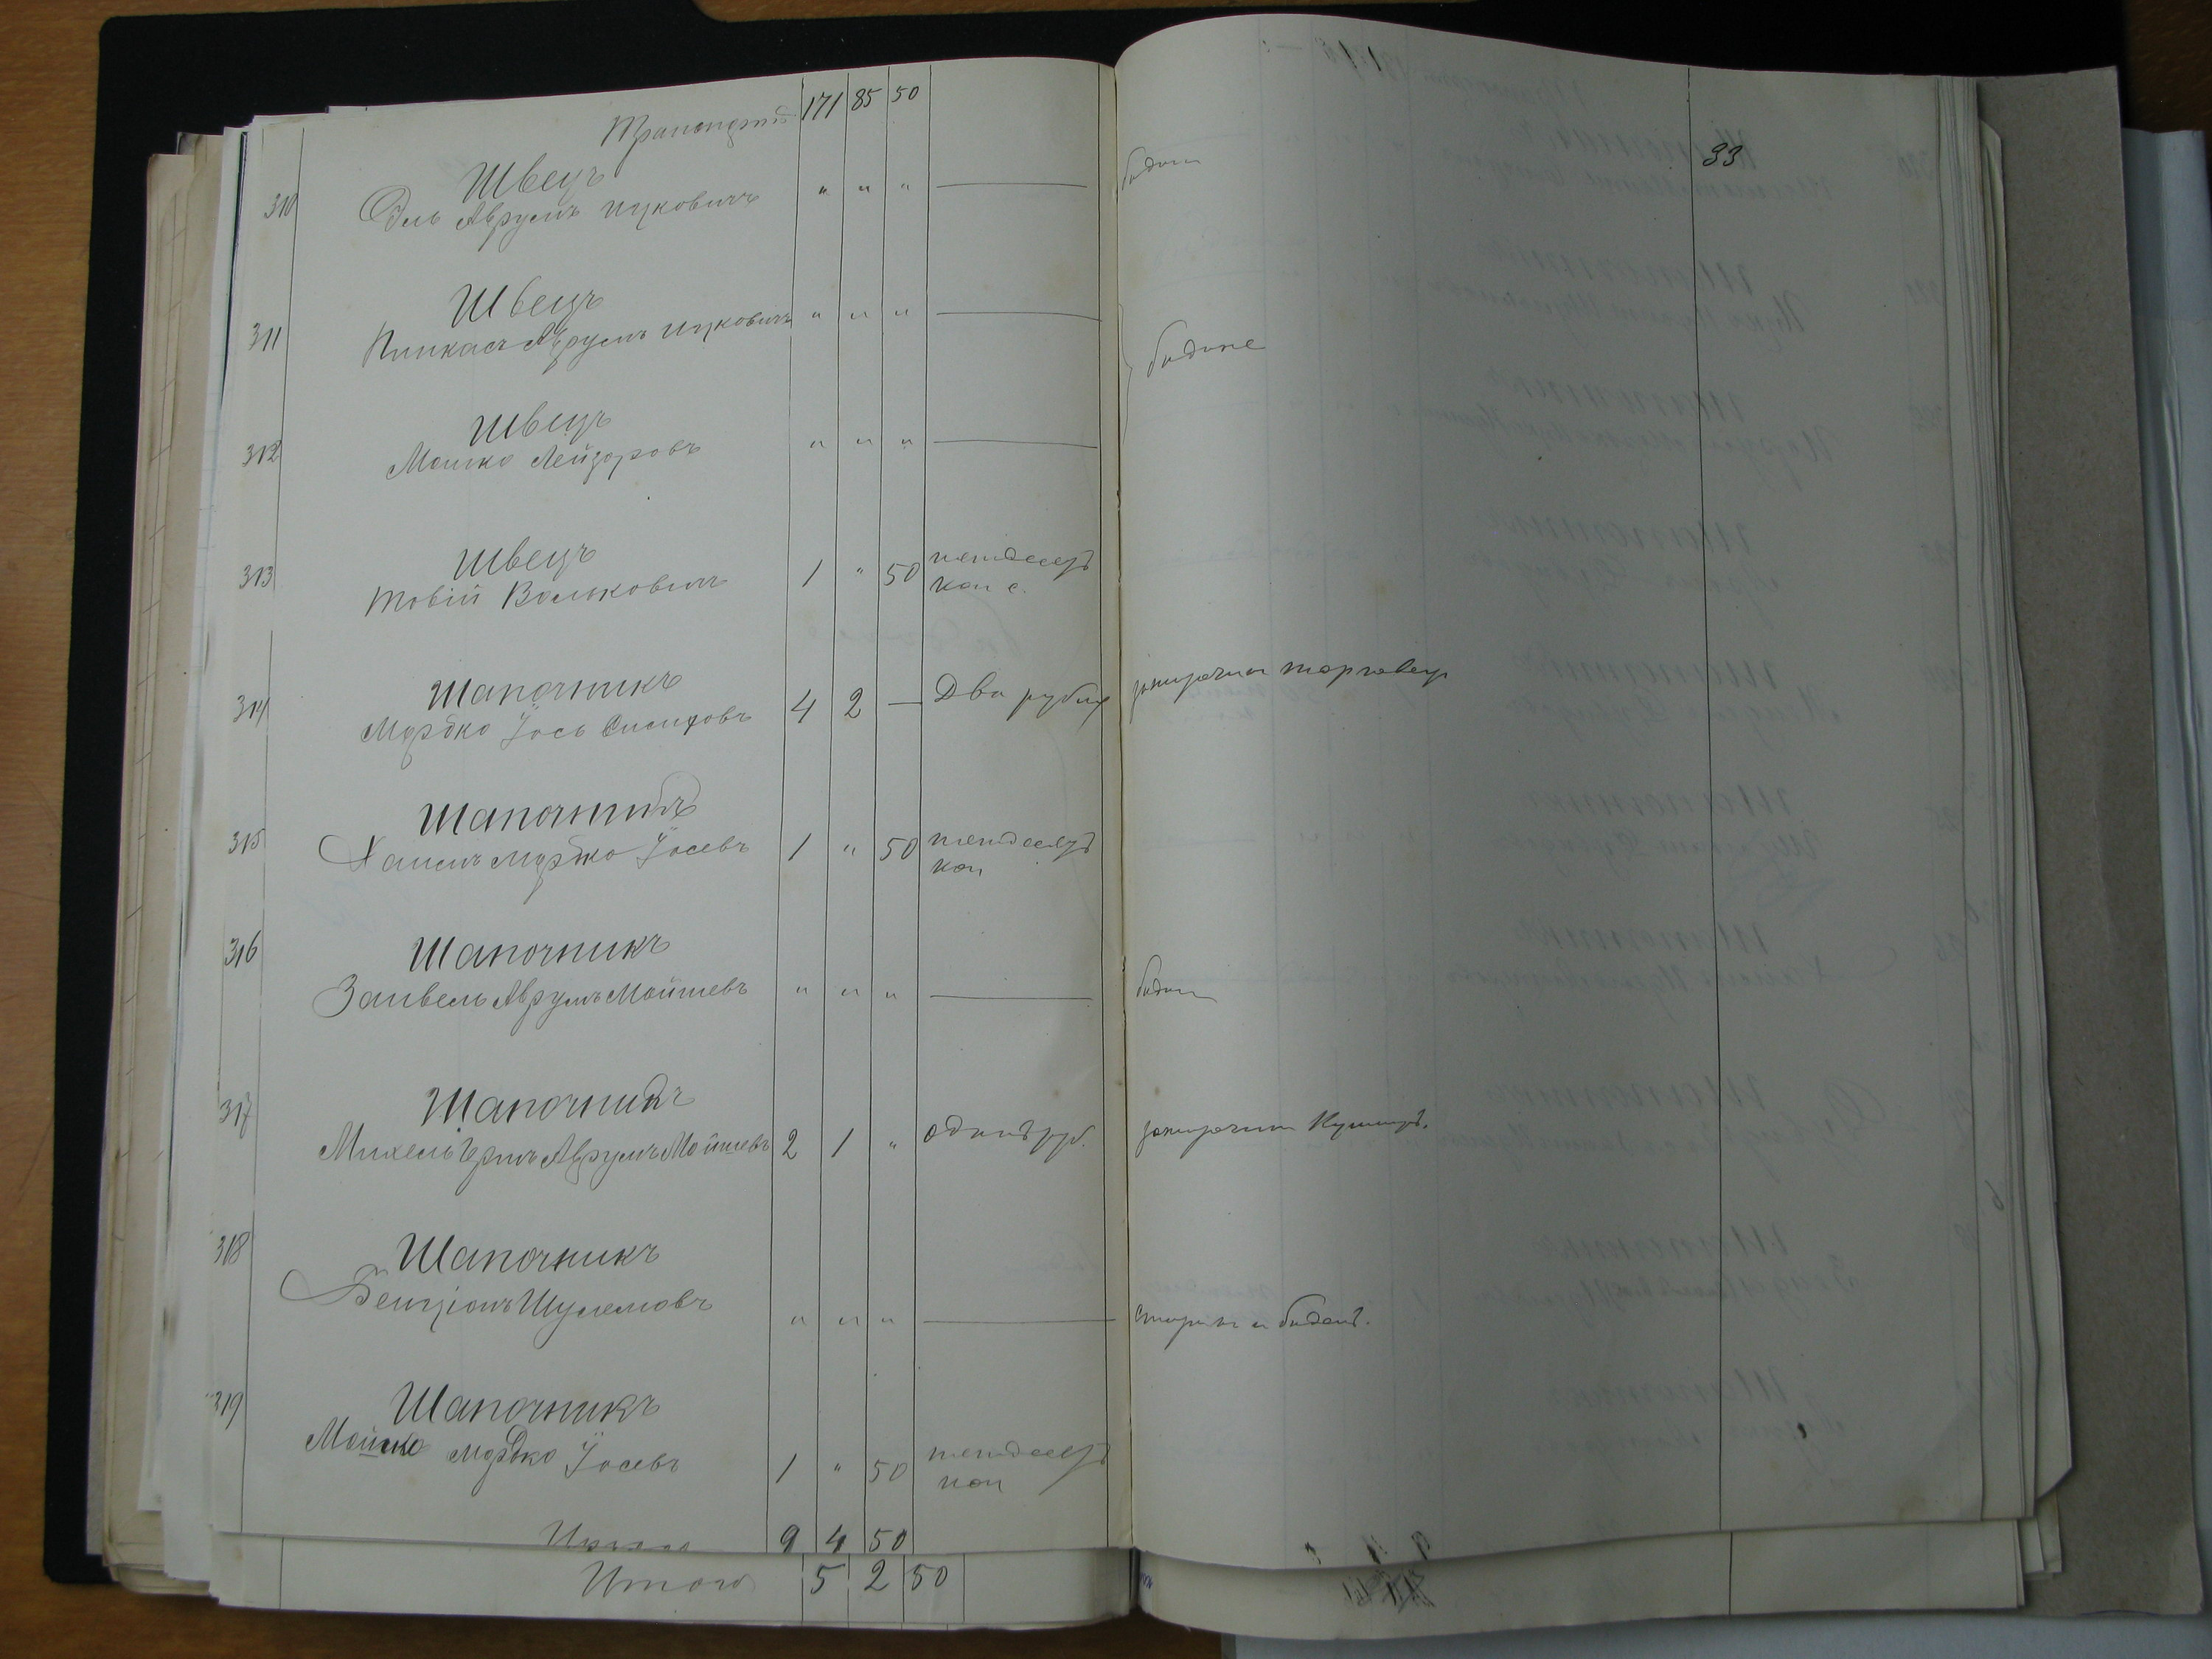 Транспортъ 171 85 50
310 Швецъ
Эль Аврумъ Ицковичъ " " " —
33
311 Швецъ
Пинкасъ Аврумъ Ицковичъ " " " —
бѣдные
312 Швецъ
Мошко Лейзоровъ " " " —
313 Швецъ
Товій Вольковичъ 1 " 50 пятдесятъ
коп с.
314 Шапочникъ
Мордко Іось 4 2 — Два рубля
торговецъ
315 Шапочникъ
Хаимъ Мордко Іосевъ 1 " 50 пятдесятъ
коп
316 Шапочникъ
Занвель Аврумъ Мойшевъ " " " —
317 Шапочникъ
Михель Аврумъ Мойшевъ 2 1 " одинъ руб.
318 Шапочникъ
Бенціонъ Шулемовъ " " " —
старъ и бѣденъ.
319 Шапочникъ
Мошко Мордко Іосевъ 1 " 50 пятдесятъ
коп
Итого 9 4 50
Итого 5 2 50